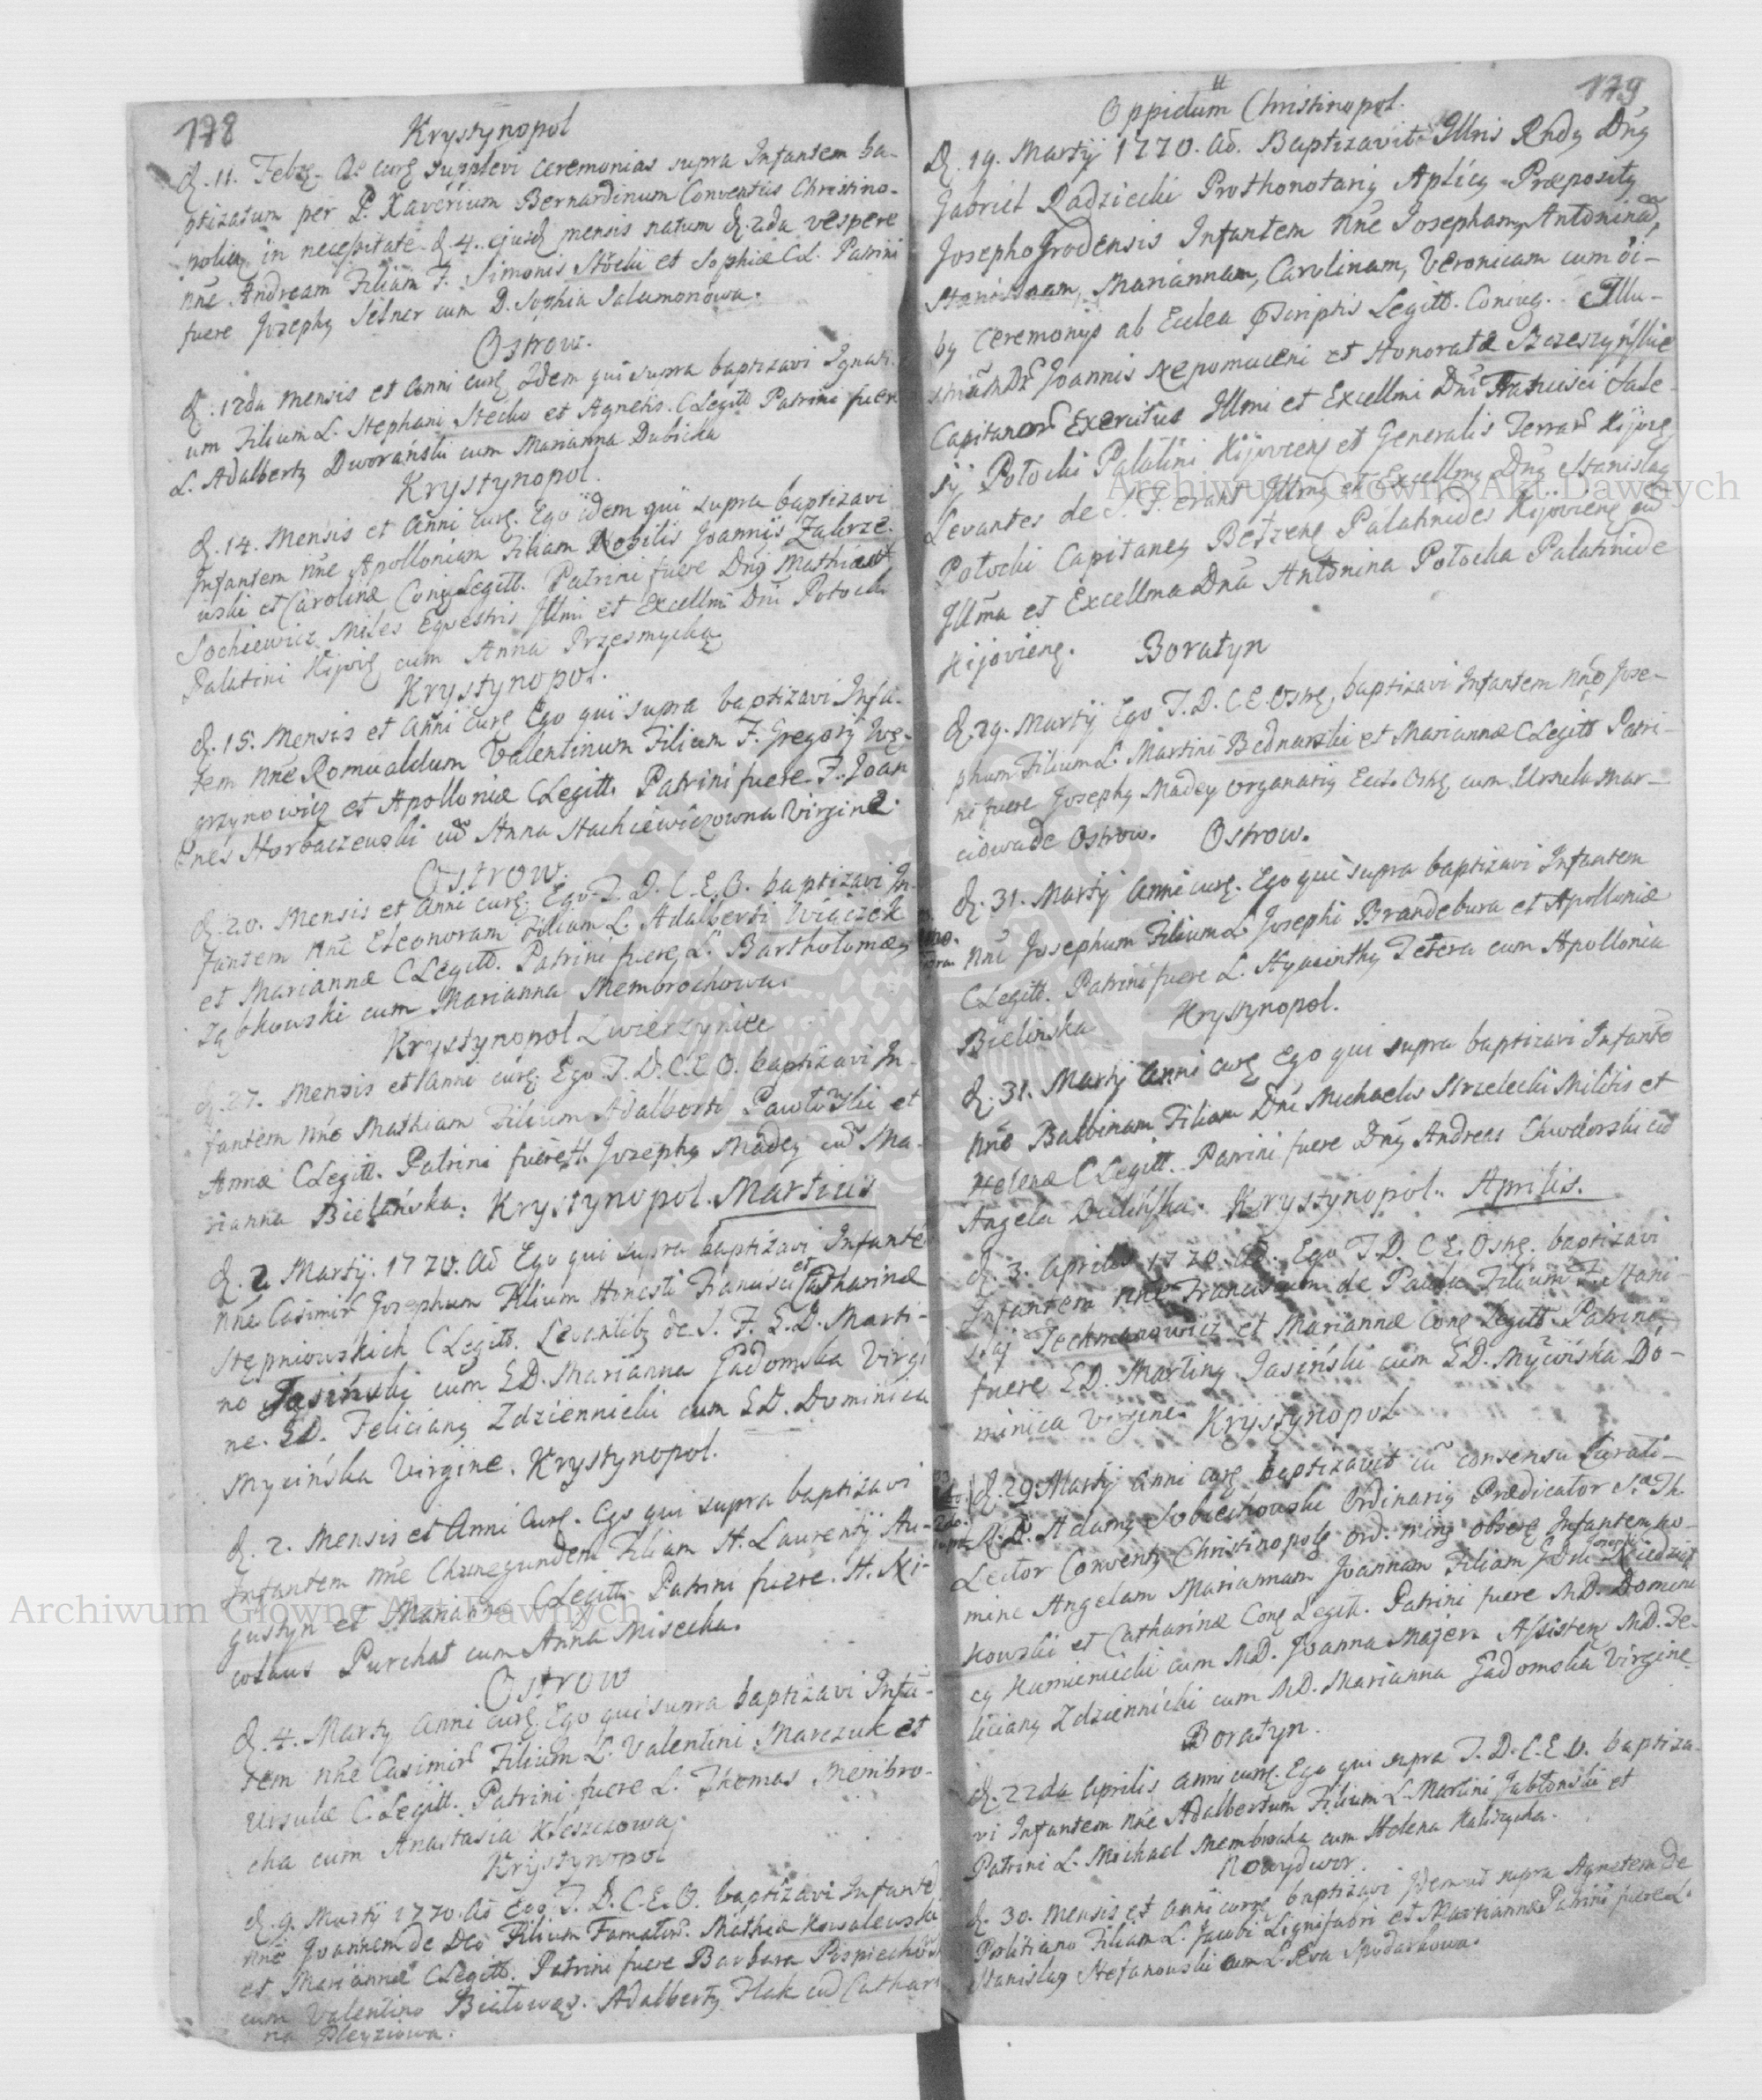 178
Krystynopol
d. 11. Febr. Ao curr. supplevi ceremonias supra Infantem ba-
ptizatum per P. Xaverium Bernardinum Conventus Christino-
polien. in necessitate d. 4. ejusd. mensis natum d. 2da vespere
nne Andream Filium F. Simonis et Sophiæ C.L. Patrini
fuere Josephg Selner cum D. Sophia Salamonowa.
Ostrow.
d. 12da mensis et Anni curr. Idem qui supra baptizavi Ignati-
um Filium L. Stephani Stecko et Agnetis C Legitt. Patrini fuere
L. Adalbertg Dworański cum Marianna Dubicka
Krystynopol.
d. 14. Mensis et Anni curr. Ego idem qui supra baptizavi
Infantem nne Apolloniam Filiam Nobilis Joannis Zakrze-
wski et Carolinæ Conj. Legitt. Patrini fuere Dng Mathias
Sochiewicz Miles Equestris Illmi et Excellmi Dni Potocki
Palatini Kijov. cum Anna Przesmycka
Krystynopol.
d. 15. Mensis et Anni curr. Ego qui supra baptizavi Infa-
tem nne Romualdum Valentinum Filium F. Gregorij Wę-
grzynowicz et Apolloniæ C Legitt. Patrini fuere F. Joan
nes Horbaczewski cu Anna Stachiewiczowna Virgine.
Ostrow.
d. 20. Mensis et Anni curr. Ego I. D. C. E. O. baptizavi In-
fantem nne Eleonoram Filiam L. Adalberti Wiączek
et Mariannæ C Legitt. Patrini fuere L. Bartholomæg
Ząbkowski cum Marianna Membrochowa.
Krystynopol Zwierzyniec
d. 27. Mensis et Anni curr. Ego I. D. C. E. O. baptizavi In-
fantem nne Mathiam Filium Adalberti Pawłowski et
Annæ C Legitt. Patrini fuere H. Josephg Madey cu Ma-
rianna Bielańska. Krystynopol. Martius
d. 2 Martij. 1770. Ao Ego qui supra baptizavi Infante
nne Casimir Josephum Filium Honesti Francisci et Catharinæ
Stępniowskich C Legitt. Levantibg de S. F. G.D. Marti-
no Jasiński cum G.D. Marianna Gadomska Virgi
ne. G.D. Feliciang Zdziennicki cum G.D. Dominica
Mycińska Virgine. Krystynopol.
d. 2. Mensis et Anni Curr. Ego qui supra baptizavi
Infantem nne Chunegundem Filiam H. Laurentij Au-
gustyn et Marianna C Legitt. Patrini fuere. H. Ni-
colaus Purchat cum Anna Misecka.
Ostrow
d. 4. Marty Anni curr. Ego qui supra baptizavi Infan-
tem nne Casimir Filium L. Valentini Marczuk et
Ursulæ C. Legitt. Patrini fuere L. Thomas Membro-
cha cum Anastasia Kleszczowa.
Krystynopol
d. 9. Martij 1770. Ao Ego I. D. C. E. O. baptizavi Infante
nne Joannem de Deo Filium Famator. Mathiæ Kowalewski
et Mariannæ C Legitt. Patrini fuere Barbara
cum Valentino Białowąs. Adalbertg Flak cu Cathari
na Pleyziowa.
179
Oppidum Christinopol.
d. 19. Martij 1770. Ao. Baptizavit Illris Rndg Dng
Gabriel Radziecki Prothonotarig Aplicg Præpositg
Josepho Grodensis Infantem nne Josepham, Antoninam,
Mariannam, Carolinam, Veronicam cum oi-
bg Ceremonijs ab Ecclea Legitt. Coniug. Illu-
Joannis Nepomuceni et Honoratæ Szczeszyńskie
Capitanor Exercitus Illmi et Excellmi Dni Francisci Sale-
sij Potocki Palatini Kijoviens et Generalis Terrar Kijov.
Levantes de S. F. erant Illmg et Excellmg Dng Stanislag
Potocki Capitaneg Bełzeng Palatinides Kijovieng cu
Illma et Excellma Dna Antonina Potocka Palatinide
Kijovieng. Boratyn
d. 29. Martij Ego I. D. C E. Ostr. baptizavi Infantem nne Jose-
phum Filium L. Martini Bednarski et Mariannæ C Legitt Patri-
ni fuere Josephg Madey organarig Eccl. Ostr. cum Ursula Mar-
ciowa de Ostrow. Ostrow.
d. 31. Martij Anni curr. Ego qui supra baptizavi Infantem
nne Josephum Filium L. Josephi Brandebura et Apolloniæ
C Legitt. Patrini fuere L. Hyacinthg Tetera cum Apollonia
Bielinska Krystynopol.
d. 31. Martij Anni curr. Ego qui supra baptizavi Infante
nne Balbinam Filiam Dni Michaelis Strzelecki Militis et
Helenæ C Legitt. Patrini fuere Dng Andreas Chodorski cu
Angela Dulińska. Krystynopol. Aprilis.
d. 3. Aprilis 1770. Ao. Ego I. D. C E. Ostr. baptizavi
Infantem nne Franciscum de Paula Filium F. Stani-
slai Techmanowicz et Mariannæ Conj. Legitt. Patrini
fuere G.D. Marting Jasiński cum G.D. Mycińska Do-
minica Virgine. Krystynopol
d. 29. Martij Anni curr. baptizavit cu consensu Curati
R. P. Adamg Sobiechowski Ordinarig Prædicator S. Th.
Lector Conventg Christinopolg Ord. Ming Observ. Infantem no-
mine Angelam Mariannam Joannam Filiam G. Dni Josephi
kowski et Catharinæ Conj. Legitt. Patrini fuere M.D. Domini
cg Humienicki cum M.D. Joanna Majer. Assisteng M.D. Fe-
liciang Zdziennicki cum M.D. Marianna Gadomska Virgine.
Boratyn.
d. 22da Aprilis Anni curr. Ego qui supra I. D. C. E. O. baptiza-
vi Infantem nne Adalbertum Filium L. Martini Jabłonski et
Patrini L. Michael Membrocha cum Helena Kaliszycka.
Nowydwor.
d. 30. Mensis et Anni curr. baptizavi Idem ut supra Agnetem de
Politiano Filiam L. Jacobi Lignifabri et Mariannæ Patrini fuere L.
Stanislag Stefanowski cum L. Eva Spodarkowa.
Archiwum Główne Akt Dawnych
Archiwum Główne Akt Dawnych